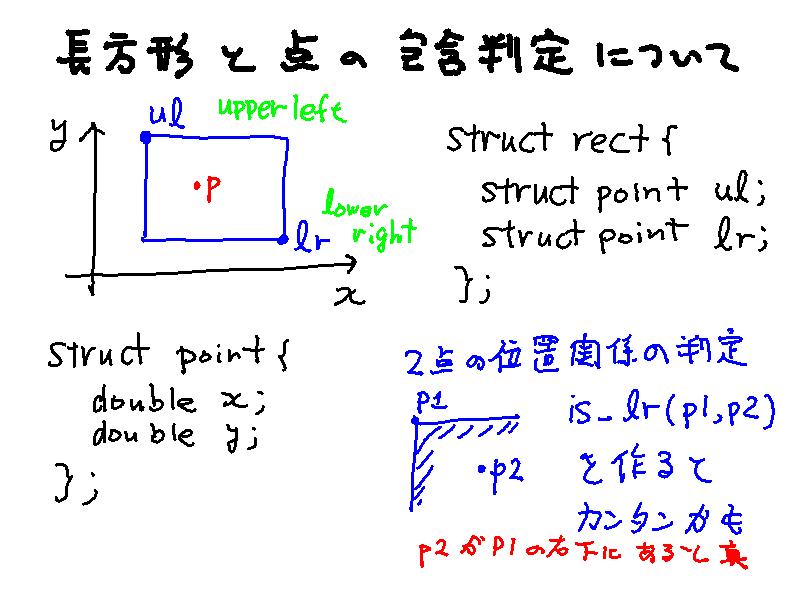 長方形と点の包含判定について
y
ul
upper left
p
lower
right
lr
x
struct rect {
struct point ul;
struct point lr;
};
struct point {
double x;
double y;
};
2点の位置関係の判定
p1
p2
is_lr(p1,p2)
を作ると
カンタンかも
p2がp1の右下にあると真